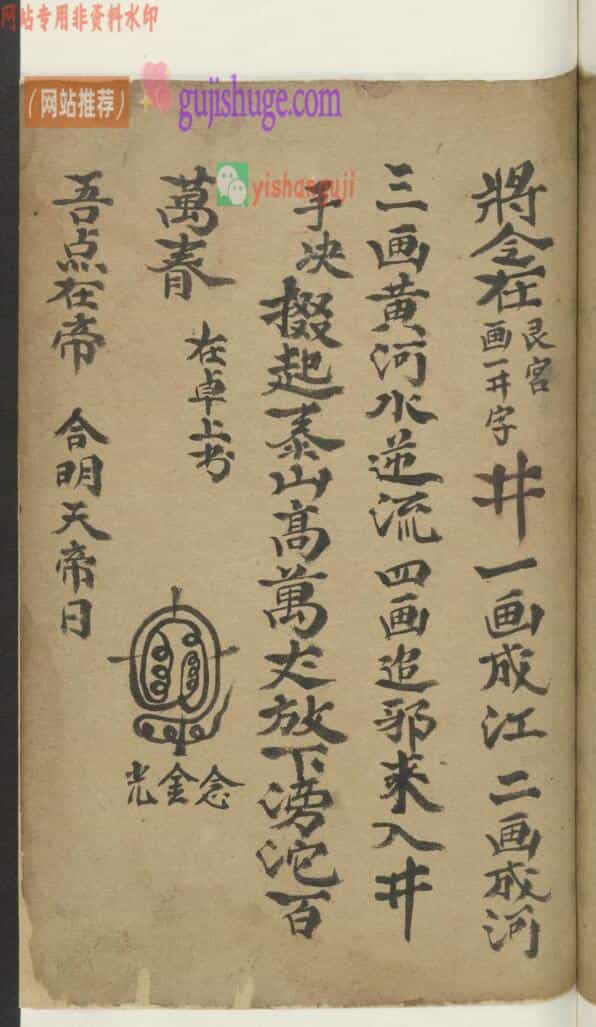 网站专用非资料水印
（网站推荐）
gujishuge.com
yishanguji
將令在
艮宮
画一井字
井 一画成江 二画成河
三画黄河水逆流 四画追邪来入井
手决
掇起泰山高萬丈放下滂沱百
萬春
在卓上书
念金光
吾点在帝 合明天帝日